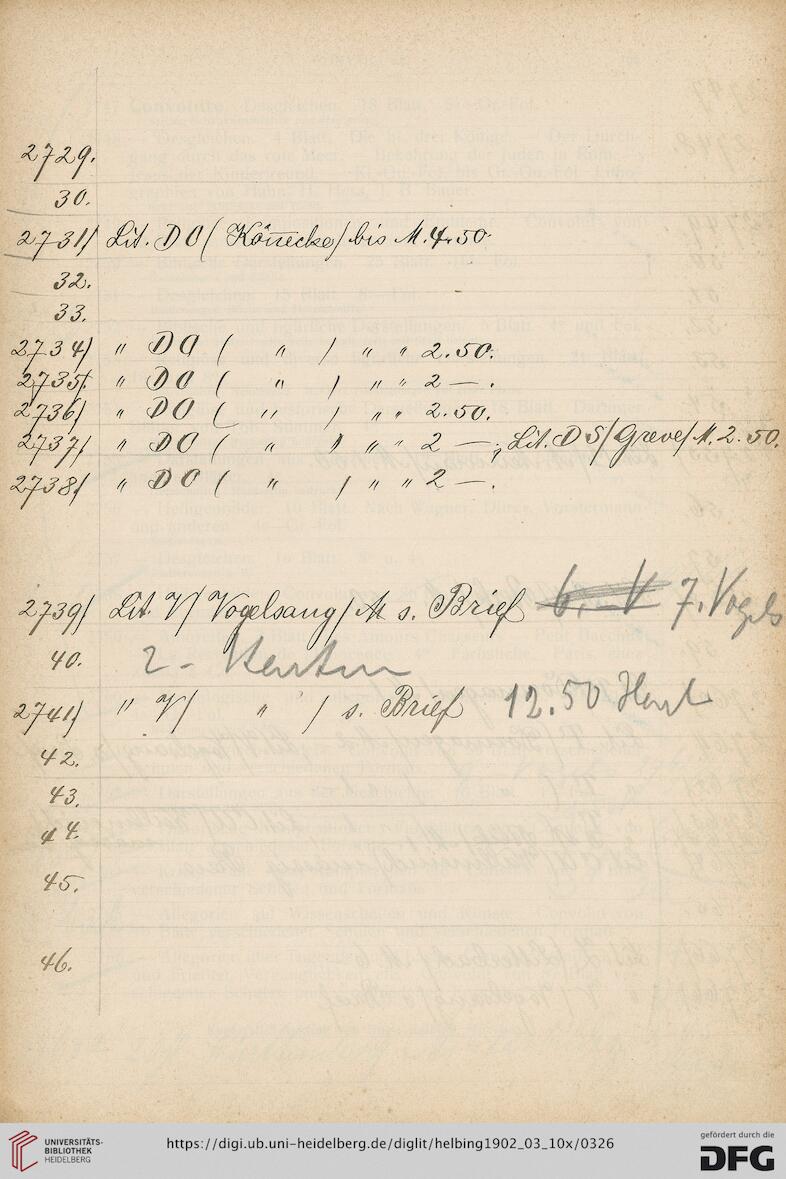 2729.
30.
2731/ Lit. DO / Könnecke / bis M. 4.50
32.
33.
2734/ " DO ( " / " " 2.50.
2735/. " DO ( " / " " 2 — .
2736/ " DO ( " / " " 2.50.
2737/ " DO ( " / " " 2 — ; Lit. DS / Greve / M. 2.50.
2738/ " DO ( " / " " 2 — .
2739/ Lit. V / Vogelsang / M s. Brief 7. Vogels
40. 2 -
2741/ " V / " / s. Brief 12.50
42.
43.
44.
45.
46.
UNIVERSITÄTS-
BIBLIOTHEK
HEIDELBERG
https://digi.ub.uni-heidelberg.de/diglit/helbing1902_03_10x/0326
gefördert durch die
DFG